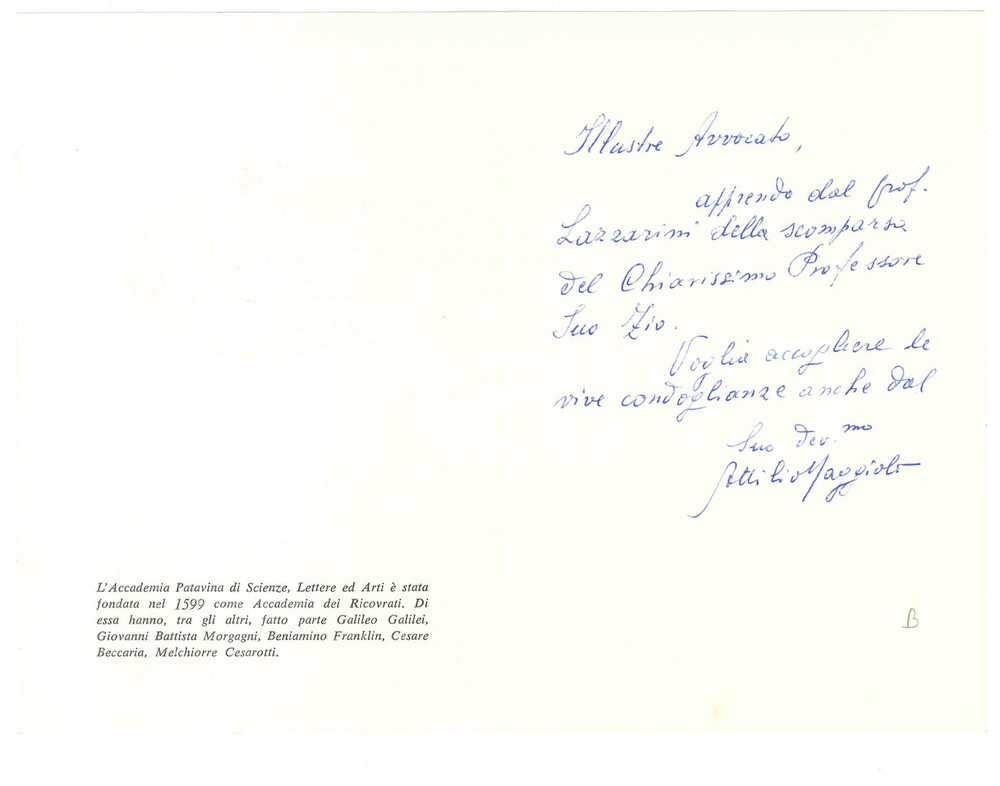 L'Accademia Patavina di Scienze, Lettere ed Arti è stata
fondata nel 1599 come Accademia dei Ricovrati. Di
essa hanno, tra gli altri, fatto parte Galileo Galilei,
Giovanni Battista Morgagni, Beniamino Franklin, Cesare
Beccaria, Melchiorre Cesarotti.
Illustre Avvocato,
apprendo dal Prof.
Lazzarini della scomparsa
del Chiarissimo Professore
Suo Zio.
Voglia accogliere le
vive condoglianze anche dal
Suo dev.mo
Attilio Maggiolo
B